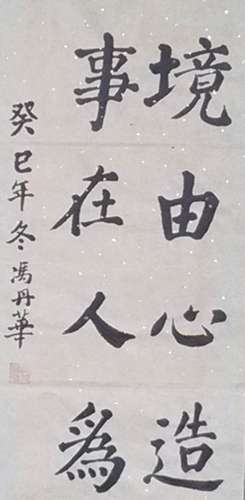 境由心造
事在人為
癸巳年冬馮丹華